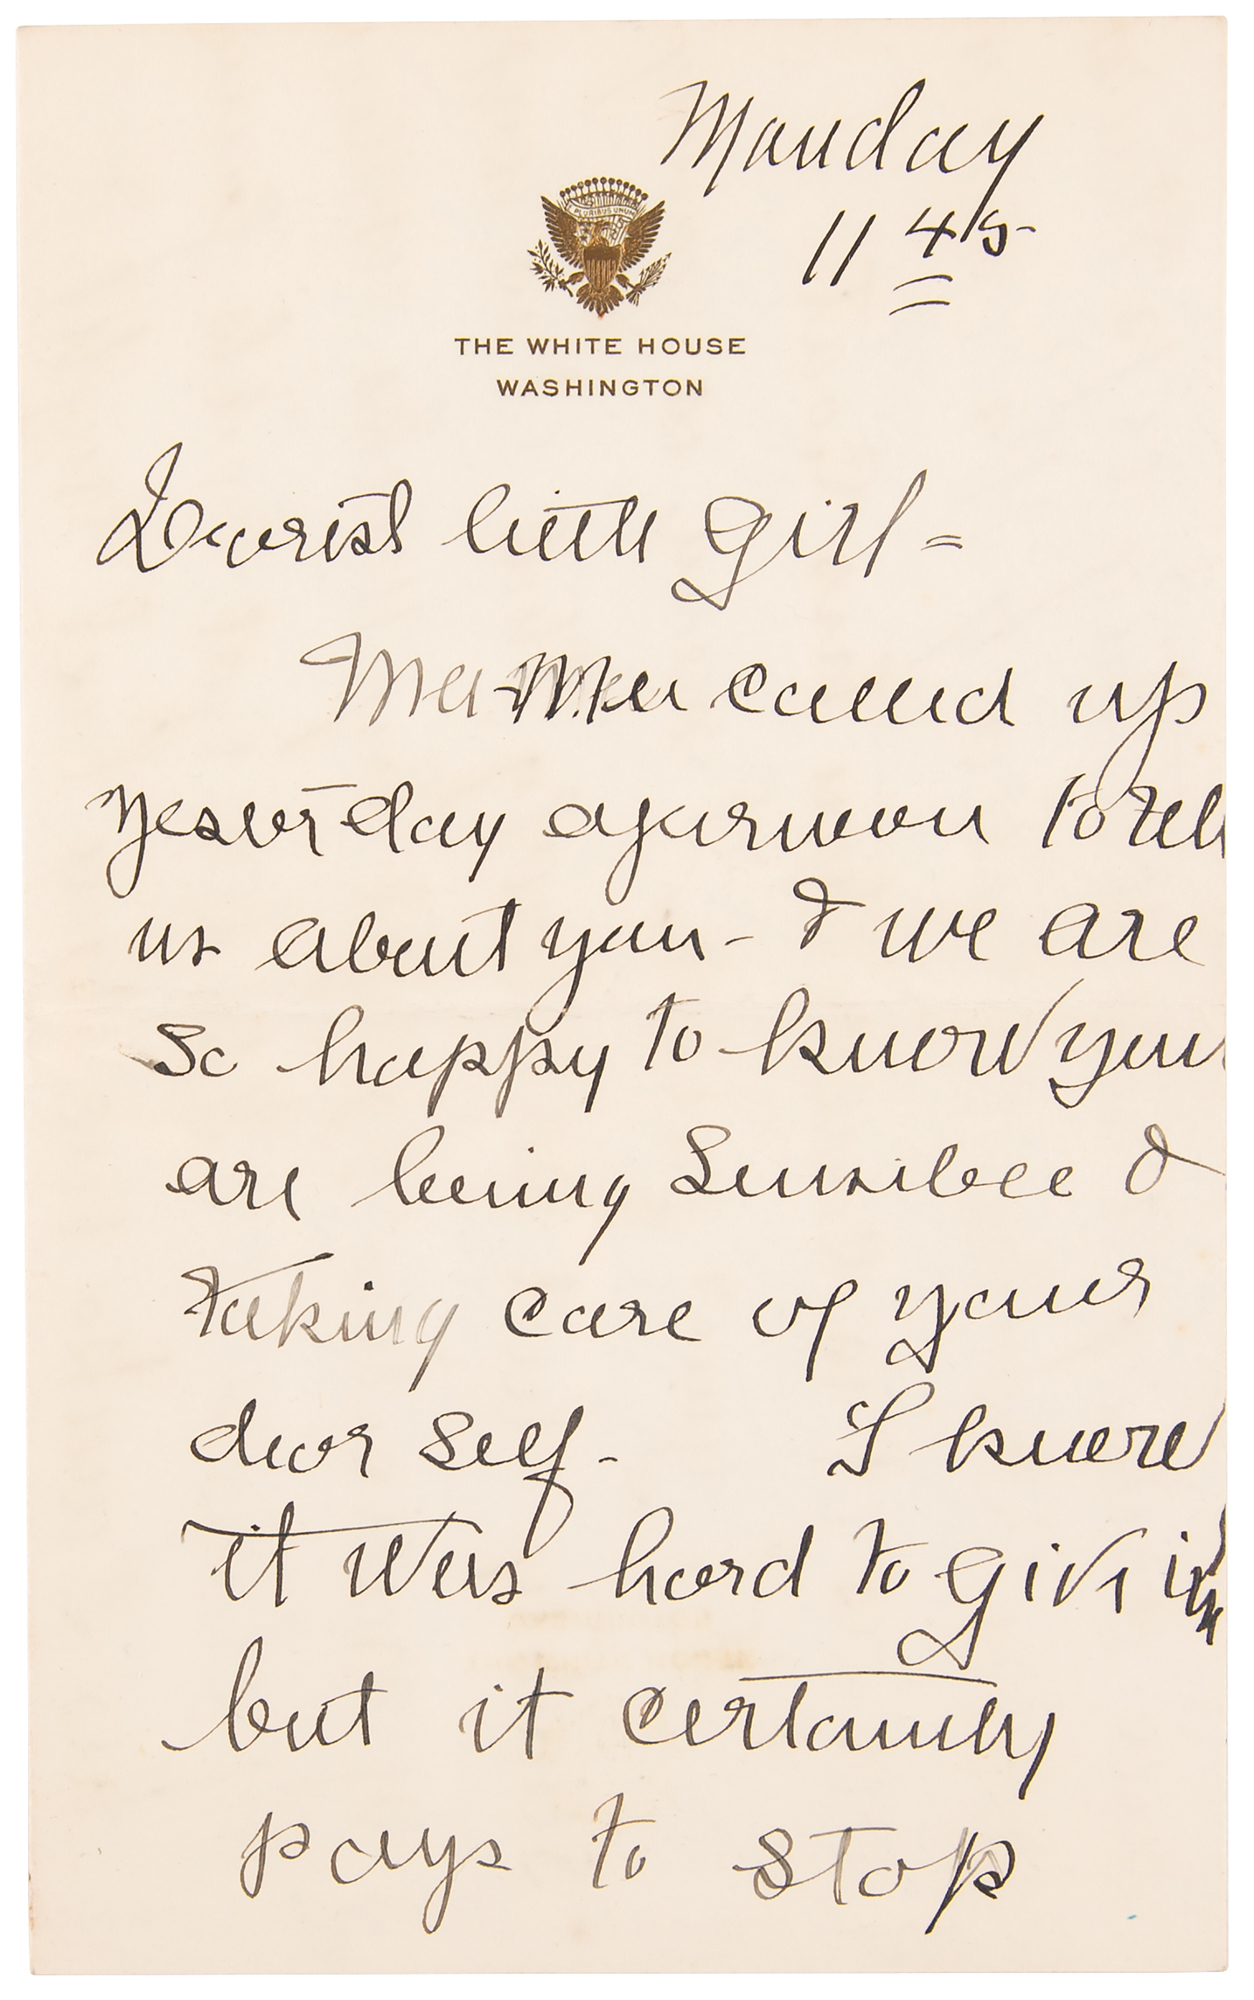 Monday
11 45
E PLURIBUS UNUM
THE WHITE HOUSE
WASHINGTON
Dearest little girl =
called up
yesterday afternoon to tell
us about you - & we are
so happy to know you
are being sensible &
taking care of your
dear self - I know
it was hard to give in
but it certainly
pays to stop